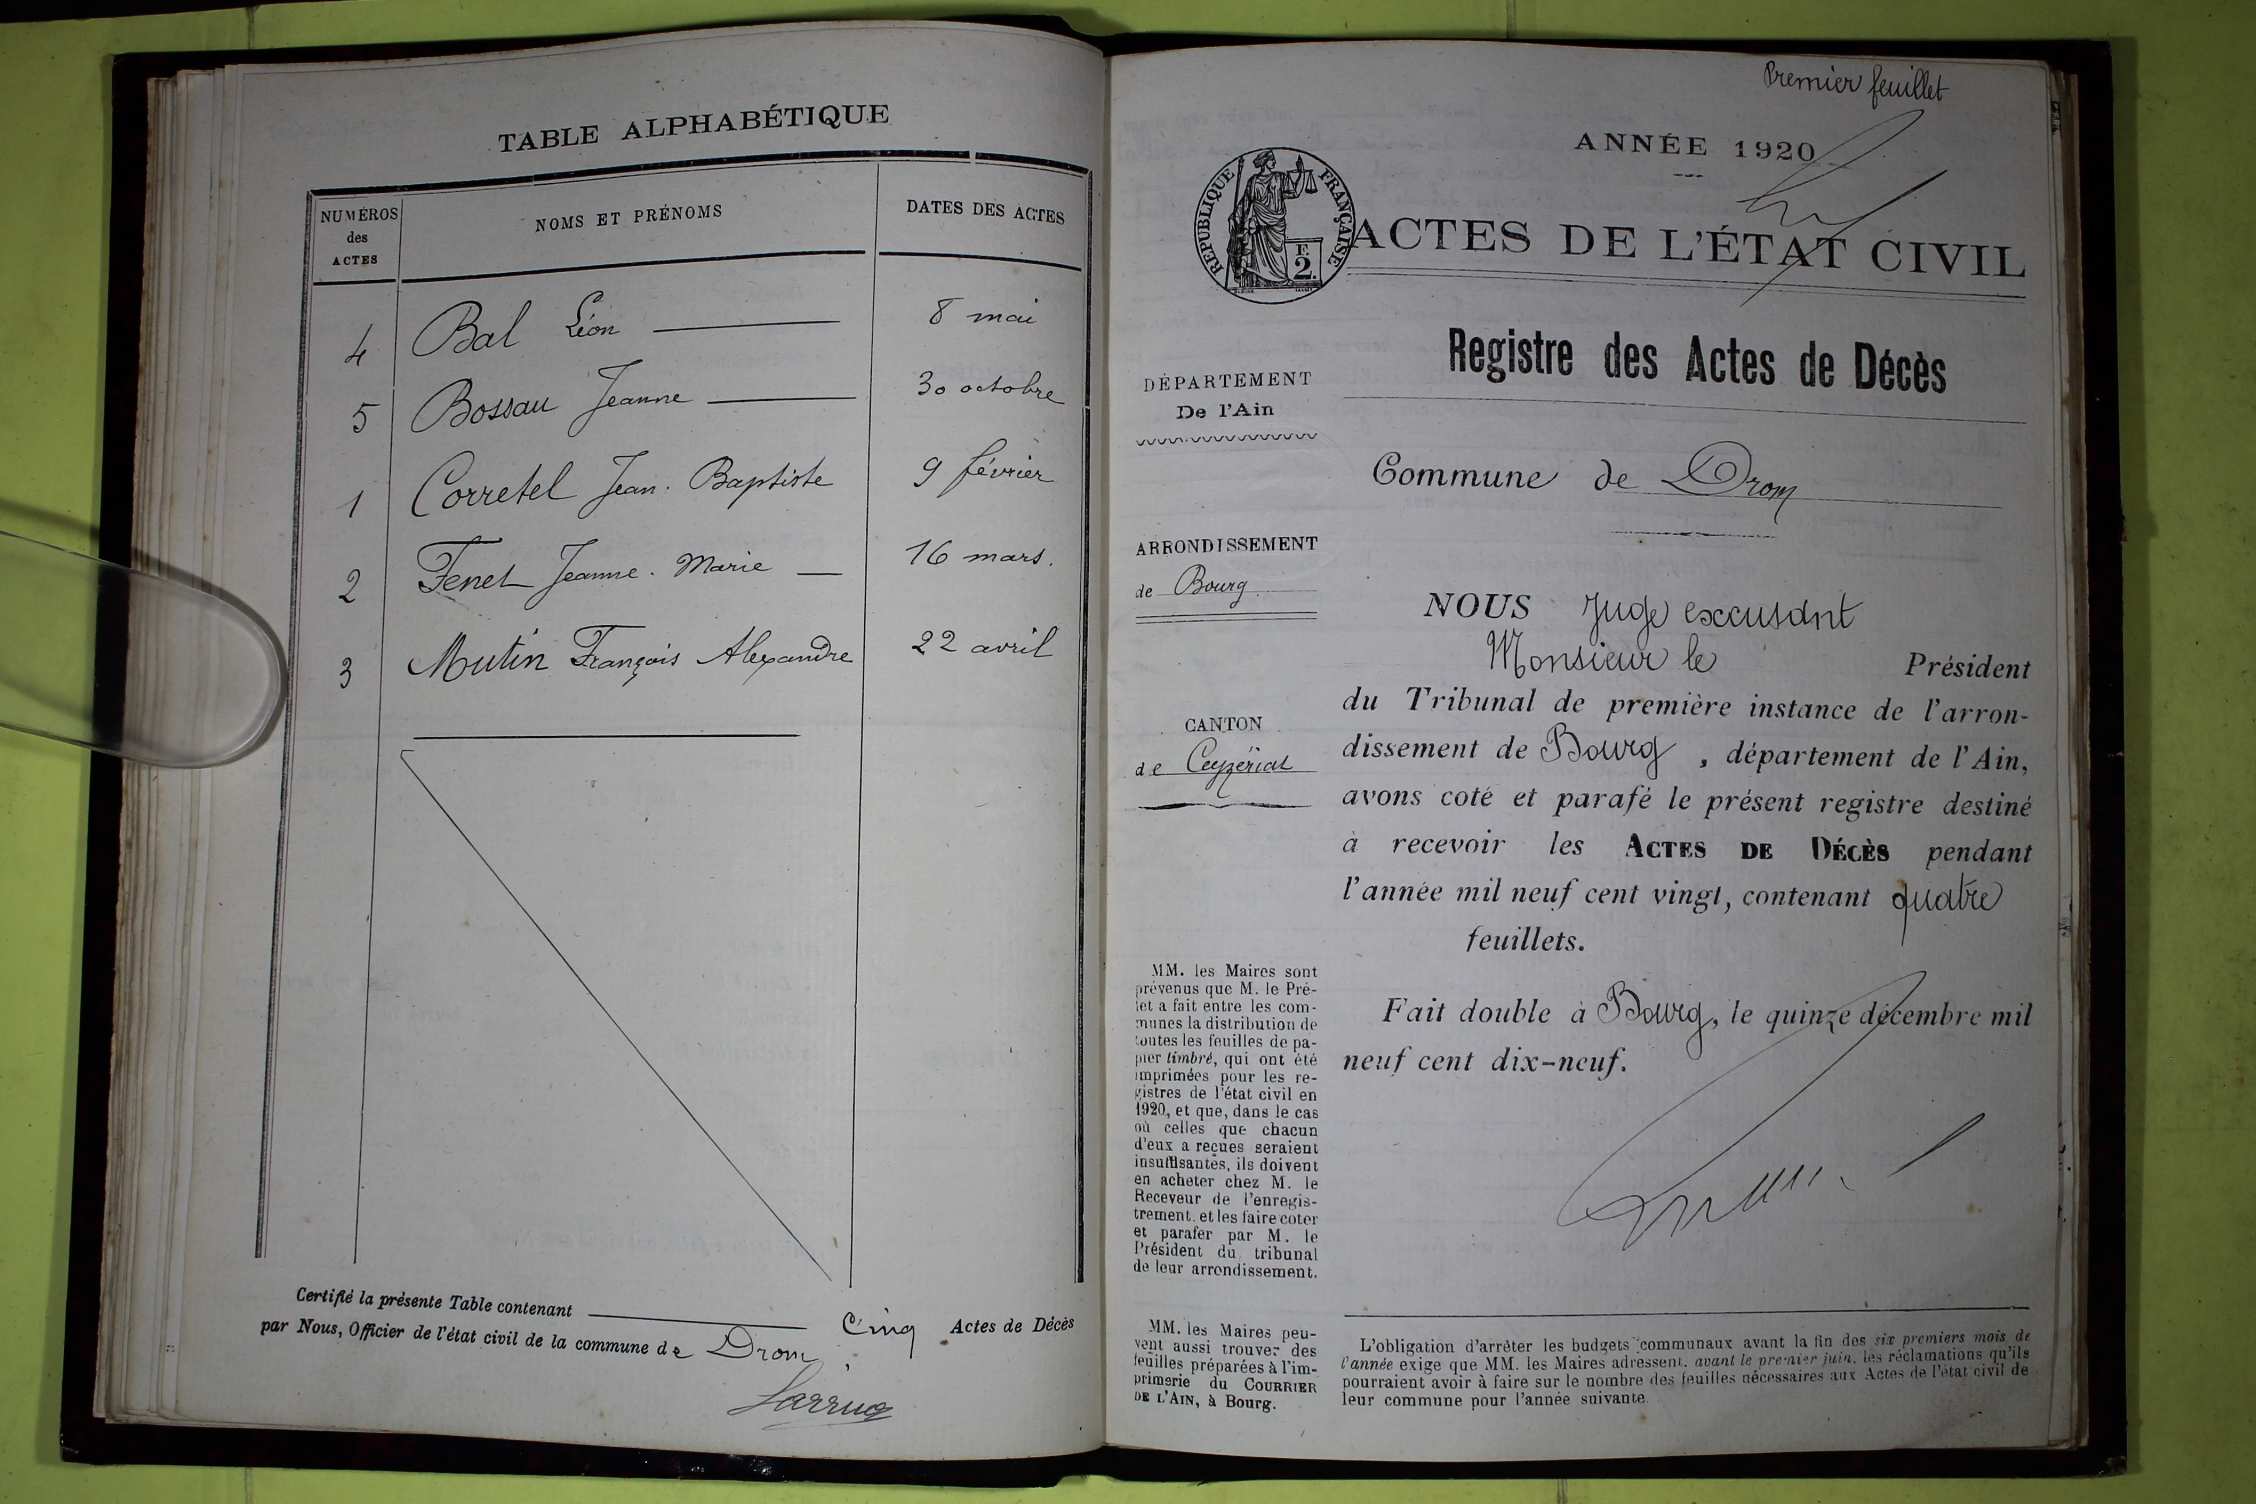 TABLE ALPHABÉTIQUE
NUMÉROS
des
ACTES
NOMS ET PRÉNOMS
DATES DES ACTES
4 Bal Léon 8 mai
5 Bossau Jeanne 30 octobre
1 Corretel Jean-Baptiste 9 février
2 Fenet Jeanne-Marie 16 mars.
3 Mutin François Alexandre 22 avril
Certifié la présente Table contenant Cinq Actes de Décès
par Nous, Officier de l'état civil de la commune de Drom.
Premier feuillet
ANNÉE 1920
RÉPUBLIQUE FRANÇAISE
F.
2.
ACTES DE L'ÉTAT CIVIL
Registre des Actes de Décès
DÉPARTEMENT
De l'Ain
Commune de Drom
ARRONDISSEMENT
de Bourg
CANTON
de Ceyzériat
NOUS Juge excusant
Monsieur le Président
du Tribunal de première instance de l'arron-
dissement de Bourg, département de l'Ain,
avons coté et parafé le présent registre destiné
à recevoir les ACTES DE DÉCÈS pendant
l'année mil neuf cent vingt, contenant quatre
feuillets.
Fait double à Bourg, le quinze décembre mil
neuf cent dix-neuf.
MM. les Maires sont
prévenus que M. le Pré-
fet a fait entre les com-
munes la distribution de
toutes les feuilles de pa-
pier timbré, qui ont été
imprimées pour les re-
gistres de l'état civil en
1920, et que, dans le cas
où celles que chacun
d'eux a reçues seraient
insuffisantes, ils doivent
en acheter chez M. le
Receveur de l'enregis-
trement, et les faire coter
et parafer par M. le
Président du tribunal
de leur arrondissement.
MM. les Maires peu-
vent aussi trouver des
feuilles préparées à l'im-
primerie du COURRIER
DE L'AIN, à Bourg.
L'obligation d'arrêter les budgets communaux avant la fin des six premiers mois de
l'année exige que MM. les Maires adressent, avant le premier juin, les réclamations qu'ils
pourraient avoir à faire sur le nombre des feuilles nécessaires aux Actes de l'état civil de
leur commune pour l'année suivante.